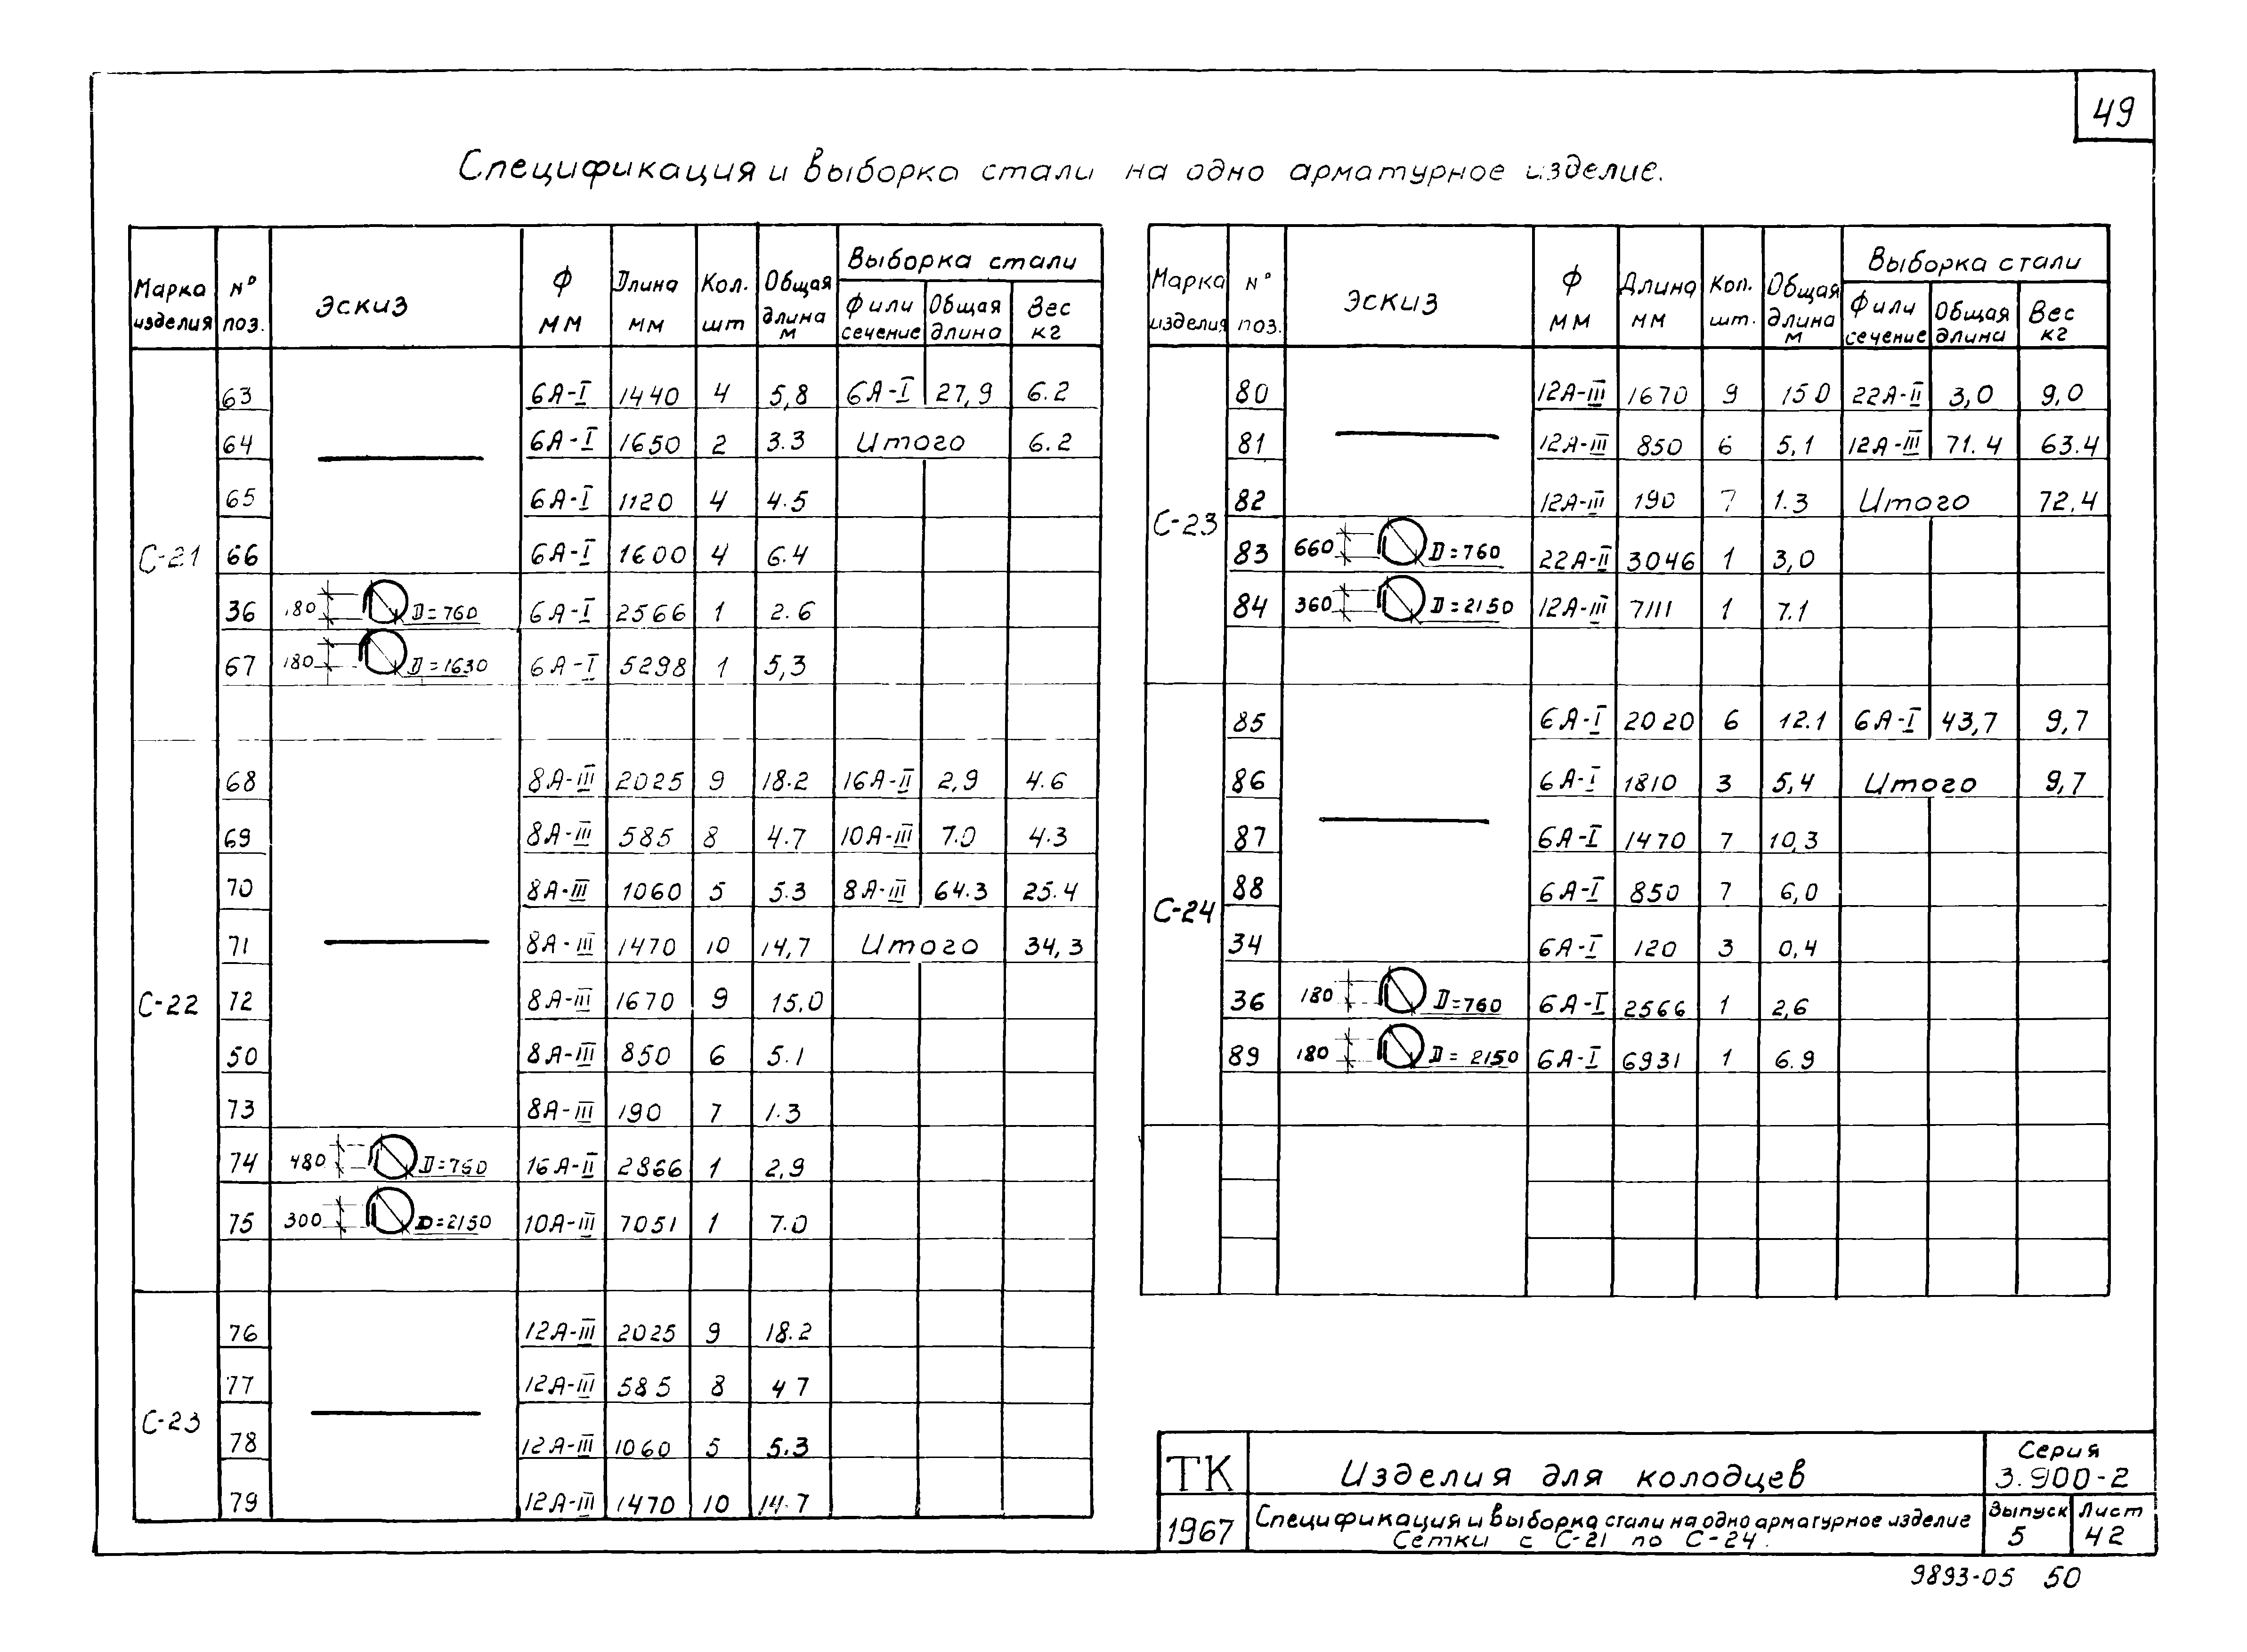 49
Спецификация и выборка стали на одно арматурное изделие.
Марка изделия | № поз. | Эскиз | Ф мм | Длина мм | Кол. шт | Общая длина м | Выборка стали: Ф или сечение | Общая длина | Вес кг
С-21
63 | 6А-I | 1440 | 4 | 5,8 | 6А-I | 27,9 | 6.2
64 | 6А-I | 1650 | 2 | 3.3 | Итого | 6.2
65 | 6А-I | 1120 | 4 | 4.5
66 | 6А-I | 1600 | 4 | 6.4
36 | 180 D=760 | 6А-I | 2566 | 1 | 2.6
67 | 180 D=1630 | 6А-I | 5298 | 1 | 5,3
С-22
68 | 8А-III | 2025 | 9 | 18.2 | 16А-II | 2,9 | 4.6
69 | 8А-III | 585 | 8 | 4.7 | 10А-III | 7.0 | 4.3
70 | 8А-III | 1060 | 5 | 5.3 | 8А-III | 64.3 | 25.4
71 | 8А-III | 1470 | 10 | 14,7 | Итого | 34,3
72 | 8А-III | 1670 | 9 | 15.0
50 | 8А-III | 850 | 6 | 5.1
73 | 8А-III | 190 | 7 | 1.3
74 | 480 D=760 | 16А-II | 2866 | 1 | 2,9
75 | 300 D=2150 | 10А-III | 7051 | 1 | 7.0
С-23
76 | 12А-III | 2025 | 9 | 18.2
77 | 12А-III | 585 | 8 | 47
78 | 12А-III | 1060 | 5 | 5.3
79 | 12А-III | 1470 | 10 | 14.7
Марка изделия | № поз. | Эскиз | Ф мм | Длина мм | Кол. шт. | Общая длина м | Выборка стали: Ф или сечение | Общая длина | Вес кг
С-23
80 | 12А-III | 1670 | 9 | 150 | 22А-II | 3,0 | 9,0
81 | 12А-III | 850 | 6 | 5,1 | 12А-III | 71.4 | 63.4
82 | 12А-III | 190 | 7 | 1.3 | Итого | 72,4
83 | 660 D=760 | 22А-II | 3046 | 1 | 3,0
84 | 360 D=2150 | 12А-III | 7111 | 1 | 7.1
С-24
85 | 6А-I | 2020 | 6 | 12.1 | 6А-I | 43,7 | 9,7
86 | 6А-I | 1810 | 3 | 5,4 | Итого | 9,7
87 | 6А-I | 1470 | 7 | 10,3
88 | 6А-I | 850 | 7 | 6,0
34 | 6А-I | 120 | 3 | 0,4
36 | 180 D=760 | 6А-I | 2566 | 1 | 2,6
89 | 180 D=2150 | 6А-I | 6931 | 1 | 6.9
ТК
1967
Изделия для колодцев
Спецификация и выборка стали на одно арматурное изделие
Сетки с С-21 по С-24.
Серия
3.900-2
Выпуск
5
Лист
42
9893-05 50